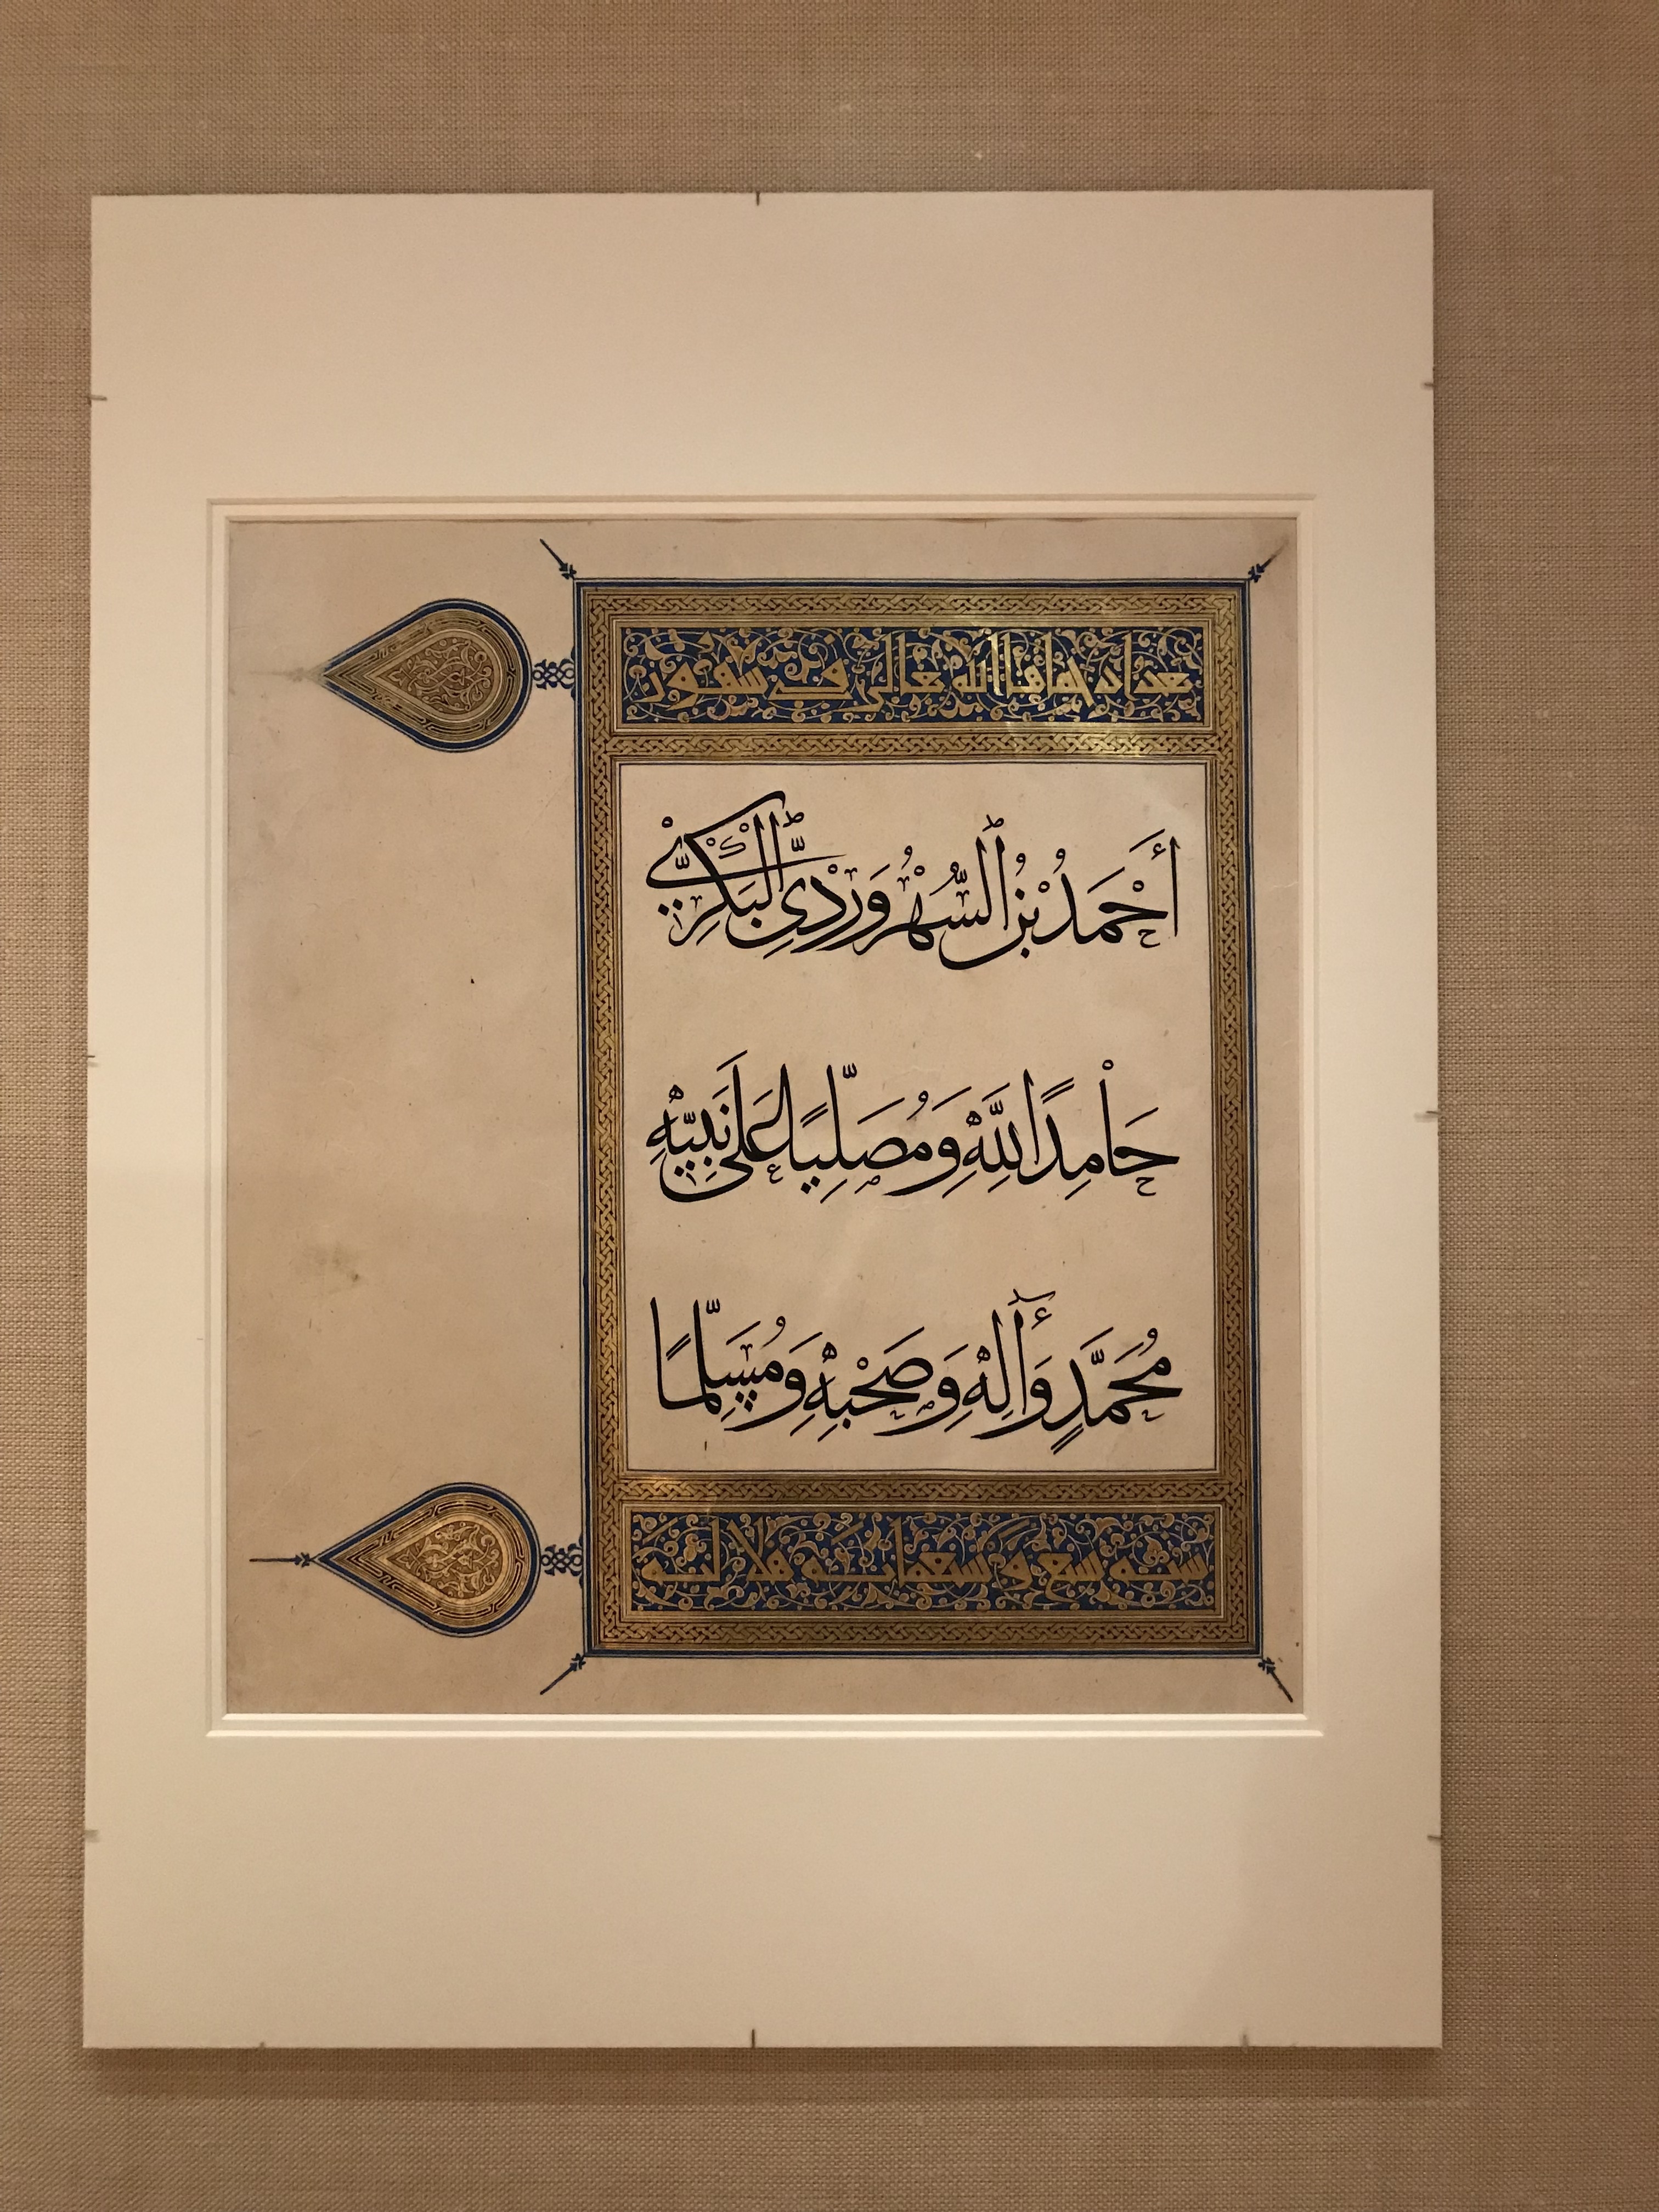 بغداد حماها الله تعالى في شهور
أَحْمَدُ بْنُ السُّهْرَوَرْدِىِّ الْبَكْرِيِّ
حَامِدًا لِلَّهِ وَمُصَلِّيًا عَلَى نَبِيِّهِ
مُحَمَّدٍ وَآلِهِ وَصَحْبِهِ وَمُسَلِّمًا
سنة سبع وسبعمائة هلالية